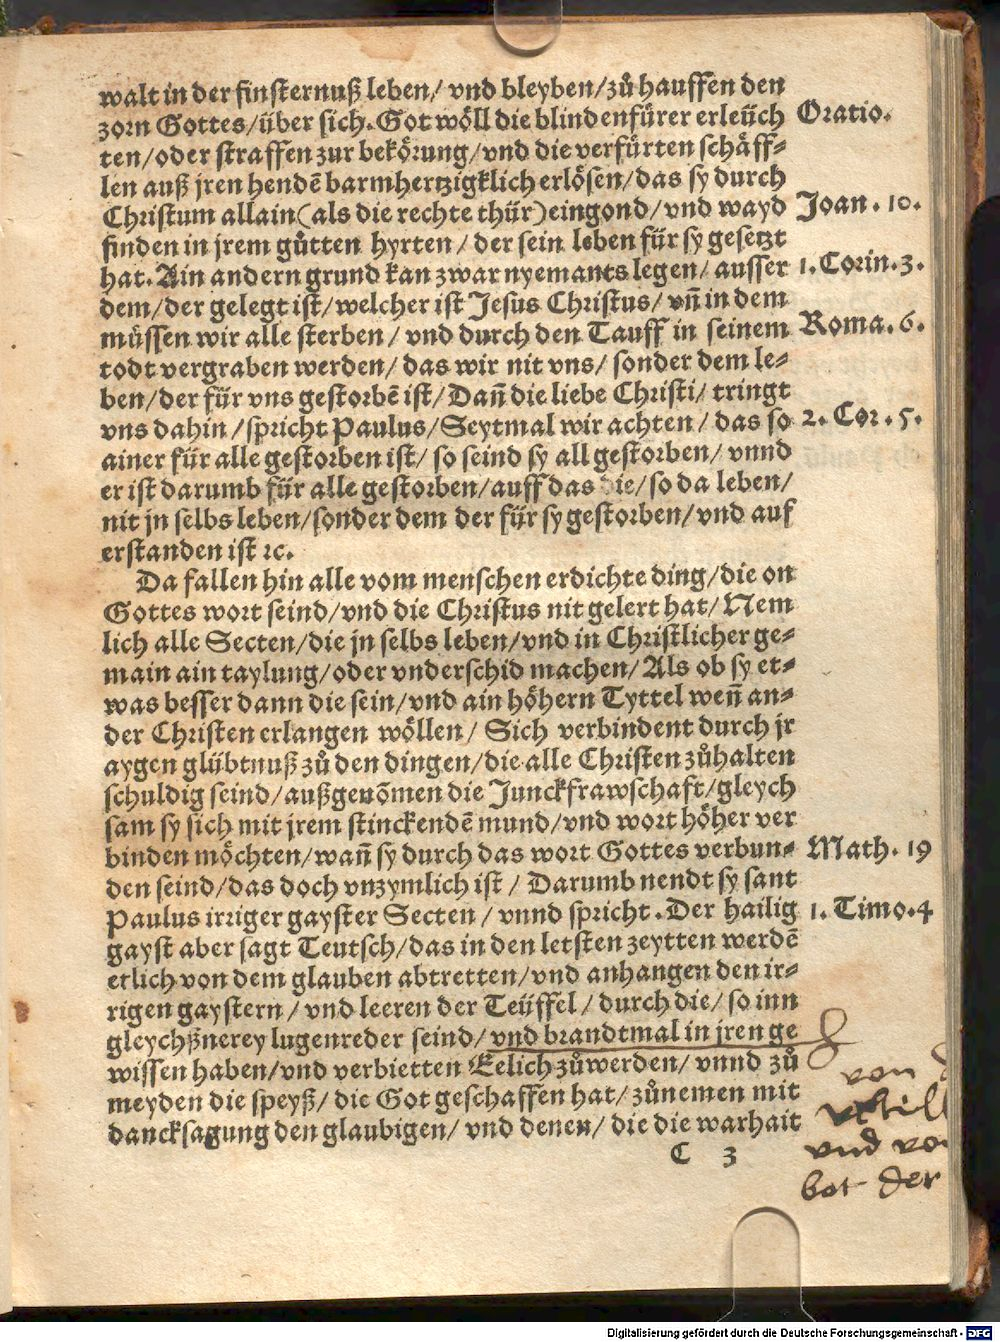 walt in der finsternuß leben/ vnd bleyben/zů hauffen den
zorn Gottes/über sich. Got wöll die blindenfürer erleüch
Oratio.
ten/oder straffen zur bekörung/vnd die verfürten schäff-
len auß jren hendē barmhertzigklich erlösen/das sy durch
Christum allain(als die rechte thür)eingond/vnd wayd
Joan. 10.
finden in jrem gůtten hyrten/der sein leben für sy gesetzt
hat. Ain andern grund kan zwar nyemants legen/ ausser
1. Corin. 3.
dem/der gelegt ist/welcher ist Jesus Christus/ vn̄ in dem
müssen wir alle sterben/ vnd durch den Tauff in seinem
Roma. 6.
todt vergraben werden/ das wir nit vns/ sonder dem le-
ben/der für vns gestorbē ist/Dan̄ die liebe Christi/ tringt
vns dahin/spricht Paulus/Seytmal wir achten/ das so
2. Cor. 5.
ainer für alle gestorben ist/ so seind sy all gestorben/ vnnd
er ist darumb für alle gestorben/auff das die/so da leben/
nit jn selbs leben/sonder dem der für sy gestorben/vnd auf
erstanden ist ꝛc.
Da fallen hin alle vom menschen erdichte ding/die on
Gottes wort seind/vnd die Christus nit gelert hat/Nem
lich alle Secten/die jn selbs leben/vnd in Christlicher ge-
main ain taylung/oder vnderschid machen/Als ob sy et-
was besser dann die sein/vnd ain höhern Tyttel wen̄ an-
der Christen erlangen wöllen/ Sich verbindent durch jr
aygen glübtnuß zů den dingen/die alle Christen zůhalten
schuldig seind/außgenōmen die Junckfrawschaft/gleych
sam sy sich mit jrem stinckendē mund/vnd wort höher ver
binden möchten/wan̄ sy durch das wort Gottes verbun-
Math. 19
den seind/das doch vnzymlich ist/ Darumb nendt sy sant
Paulus irriger gayster Secten/ vnnd spricht. Der hailig
1. Timo. 4
gayst aber sagt Teutsch/das in den letsten zeytten werdē
etlich von dem glauben abtretten/vnd anhangen den ir-
rigen gaystern/ vnd leeren der Teüffel/ durch die/ so inn
gleychßnerey lugenreder seind/vnd brandtmal in jren ge
wissen haben/vnd verbietten Eelich zůwerden/ vnnd zů
meyden die speyß/ die Got geschaffen hat/ zůnemen mit
dancksagung den glaubigen/ vnd denen/ die die warhait
C 3
von
vnd
bot der
Digitalisierung gefördert durch die Deutsche Forschungsgemeinschaft - DFG